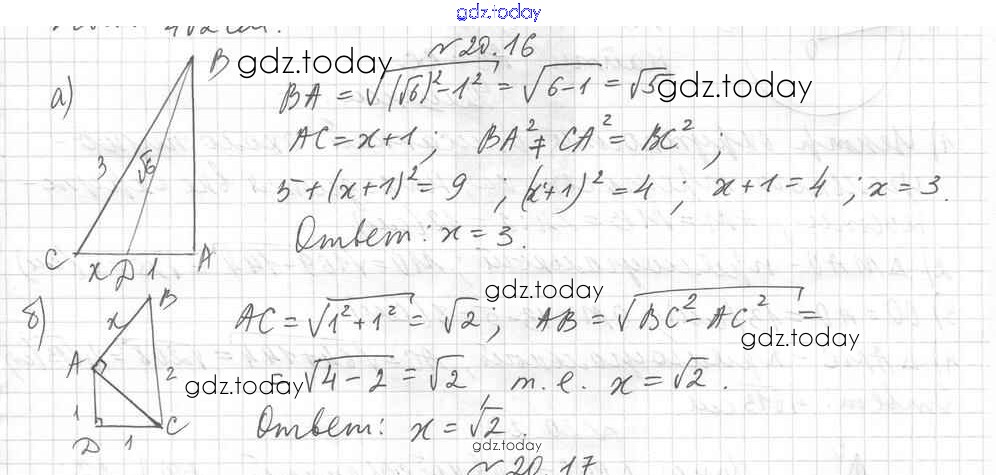 gdz.today
4√2 см.
№ 20.16
а) B gdz.today BA = √((√6)² - 1²) = √(6 - 1) = √5 gdz.today
AC = x + 1; BA² + CA² = BC²;
3 √6 5 + (x + 1)² = 9; (x + 1)² = 4; x + 1 = 4; x = 3.
Ответ: x = 3.
C x D 1 A
gdz.today
б) B x AC = √(1² + 1²) = √2; AB = √(BC² - AC²) =
gdz.today
A 2 gdz.today = √(4 - 2) = √2 т.е. x = √2.
1 D 1 C Ответ: x = √2.
gdz.today
№ 20.17